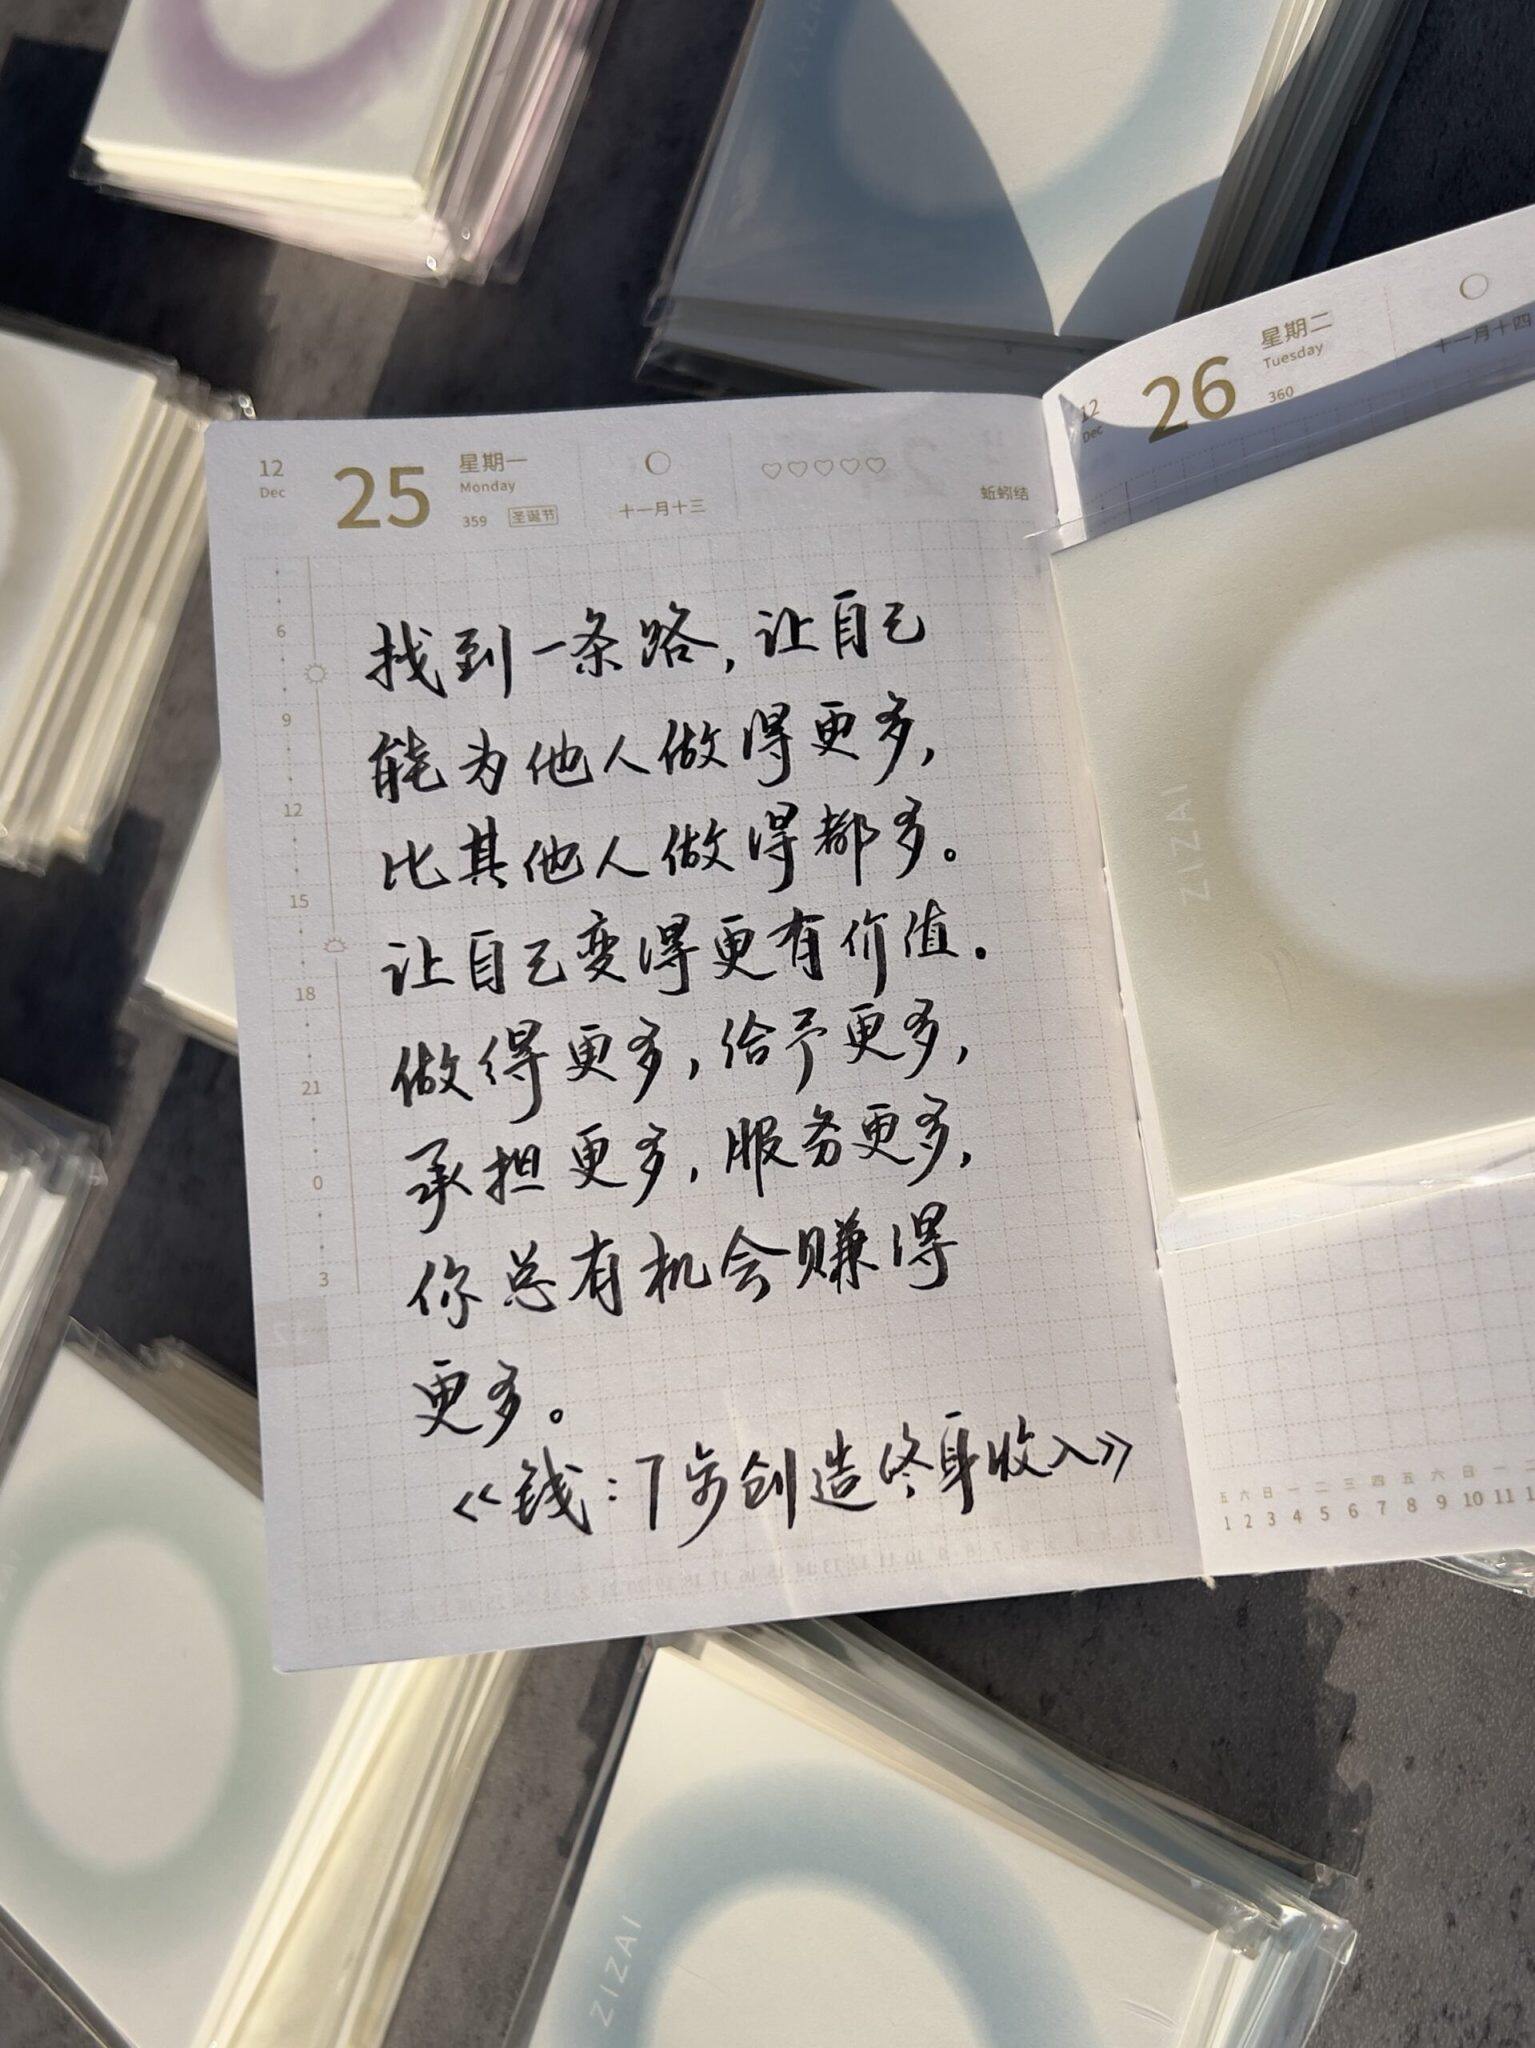 12
Dec
25
星期一
Monday
359 圣诞节
十一月十三
♡♡♡♡♡
蚯蚓结
6
9
12
15
18
21
0
3
找到一条路，让自己
能为他人做得更多，
比其他人做得都多。
让自己变得更有价值。
做得更多，给予更多，
承担更多，服务更多，
你总有机会赚得
更多。
《钱：7步创造终身收入》
12
Dec
26
星期二
Tuesday
360
十一月十四
ZIZAI
五 六 日 一 二 三 四 五 六 日 一 二
1 2 3 4 5 6 7 8 9 10 11
ZIZAI